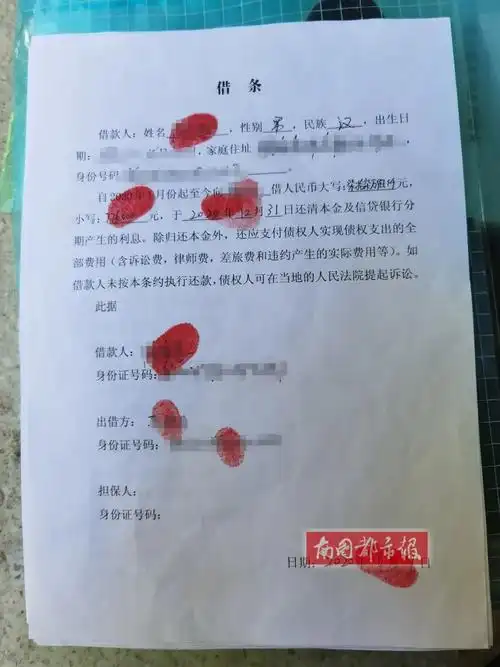 借 条
借款人：姓名，性别 男，民族 汉，出生日
期：，家庭住址
身份号码
自2020年1月份起至今向 借人民币大写：元，
小写：元，于 2020年12月31日还清本金及信贷银行分
期产生的利息。除归还本金外，还应支付债权人实现债权支出的全
部费用（含诉讼费，律师费，差旅费和违约产生的实际费用等）。如
借款人未按本条约执行还款，债权人可在当地的人民法院提起诉讼。
此据
借款人：
身份证号码：
出借方：
身份证号码：
担保人：
身份证号码：
南国都市报
日期：2020 日